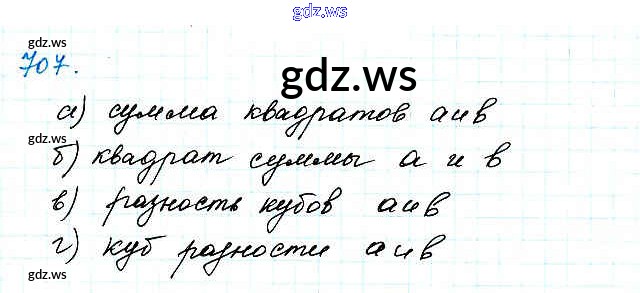 gdz.ws
gdz.ws
707.
gdz.ws
а) сумма квадратов а и в
gdz.ws
б) квадрат суммы а и в
в) разность кубов а и в
г) куб разности а и в
gdz.ws